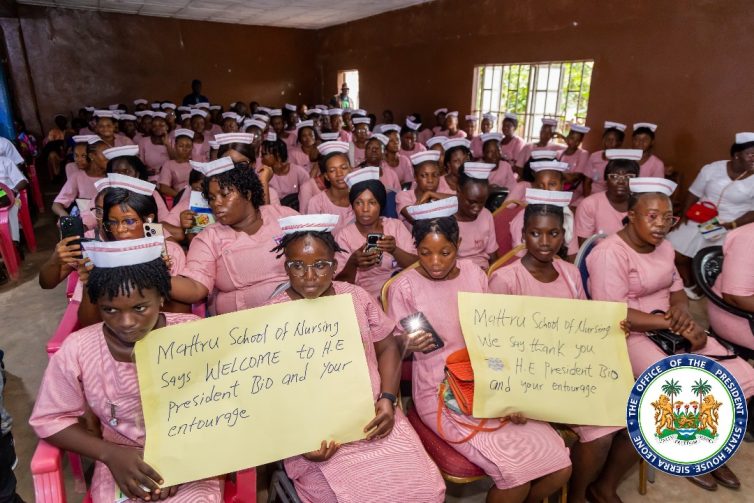 Mattru School of Nursing
Says WELCOME to H.E
president BiO and Your
entourage
Mattru School of Nursing
We Say thank you
H.E President BiO
and your entourage
THE OFFICE OF THE PRESIDENT
STATE HOUSE - SIERRA LEONE